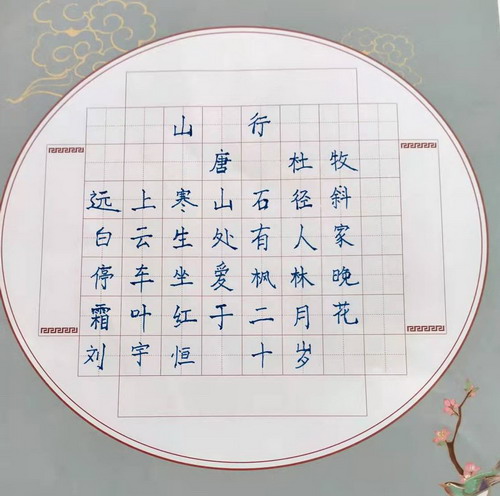 山行
唐 杜牧
远上寒山石径斜
白云生处有人家
停车坐爱枫林晚
霜叶红于二月花
刘宇恒 十岁